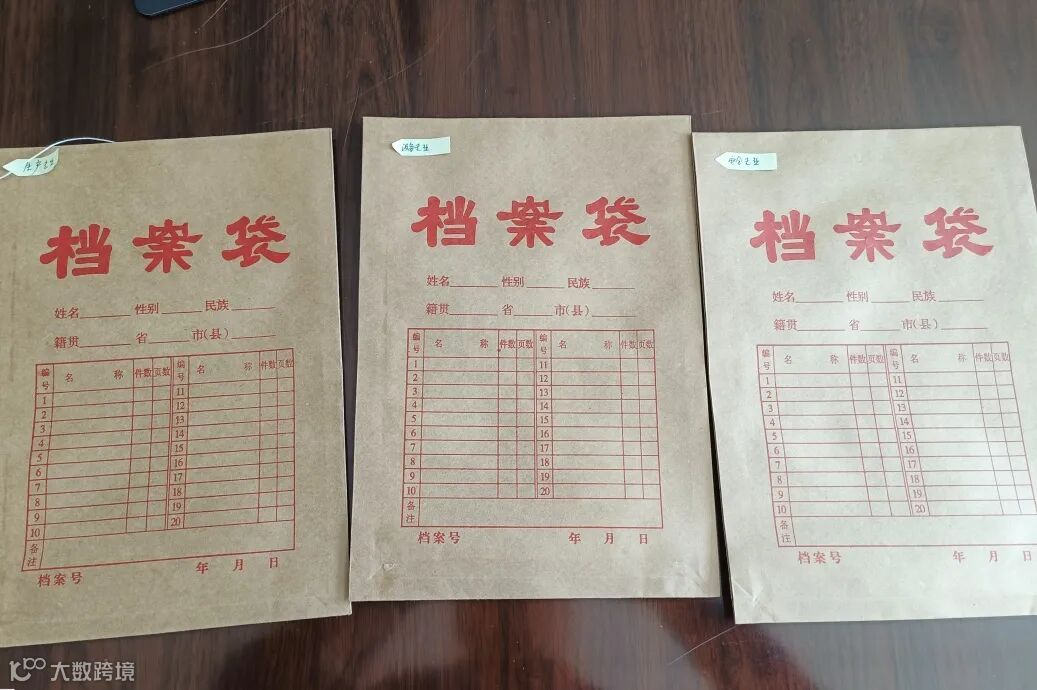 生产企业
设备企业
安全企业
档案袋
姓名 性别 民族
籍贯 省 市(县)
编号 名 称 件数 页数 编号 名 称 件数 页数
1 11
2 12
3 13
4 14
5 15
6 16
7 17
8 18
9 19
10 20
备注
档案号 年 月 日
档案袋
姓名 性别 民族
籍贯 省 市(县)
编号 名 称 件数 页数 编号 名 称 件数 页数
1 11
2 12
3 13
4 14
5 15
6 16
7 17
8 18
9 19
10 20
备注
档案号 年 月 日
档案袋
姓名 性别 民族
籍贯 省 市(县)
编号 名 称 件数 页数 编号 名 称 件数 页数
1 11
2 12
3 13
4 14
5 15
6 16
7 17
8 18
9 19
10 20
备注
档案号 年 月 日
大数跨境